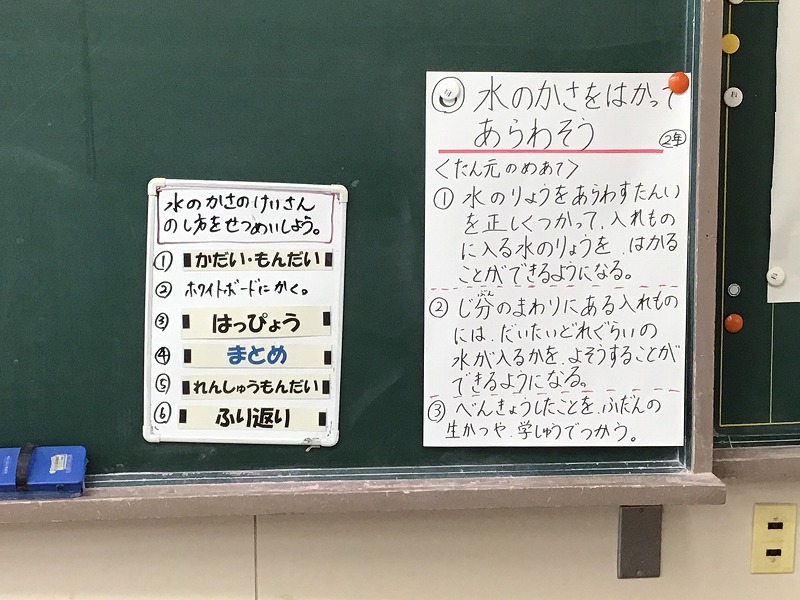 水のかさのけいさん
のし方をせつめいしよう。
① かだい・もんだい
② ホワイトボードにかく。
③ はっぴょう
④ まとめ
⑤ れんしゅうもんだい
⑥ ふり返り
水のかさをはかって
あらわそう 2年
<たん元のめあて>
① 水のりょうをあらわすたんい
を正しくつかって、入れもの
に入る水のりょうを、はかる
ことができるようになる。
② じ分のまわりにある入れもの
ぶん
には、だいたいどれぐらいの
水が入るかを、よそうすることが
できるようになる。
③ べんきょうしたことを、ふだんの
生かつや、学しゅうでつかう。